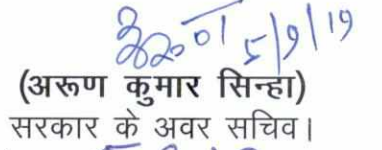 5/9/19
(अरूण कुमार सिन्हा)
सरकार के अवर सचिव।